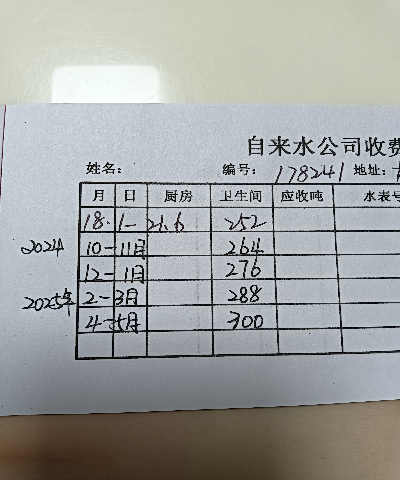 自来水公司收费
姓名: 编号: 178241 地址:
月 日 厨房 卫生间 应收吨 水表号
18. 1- 21.6 252
2024 10-11月 264
12-1月 276
2025年 2-3月 288
4-5月 300